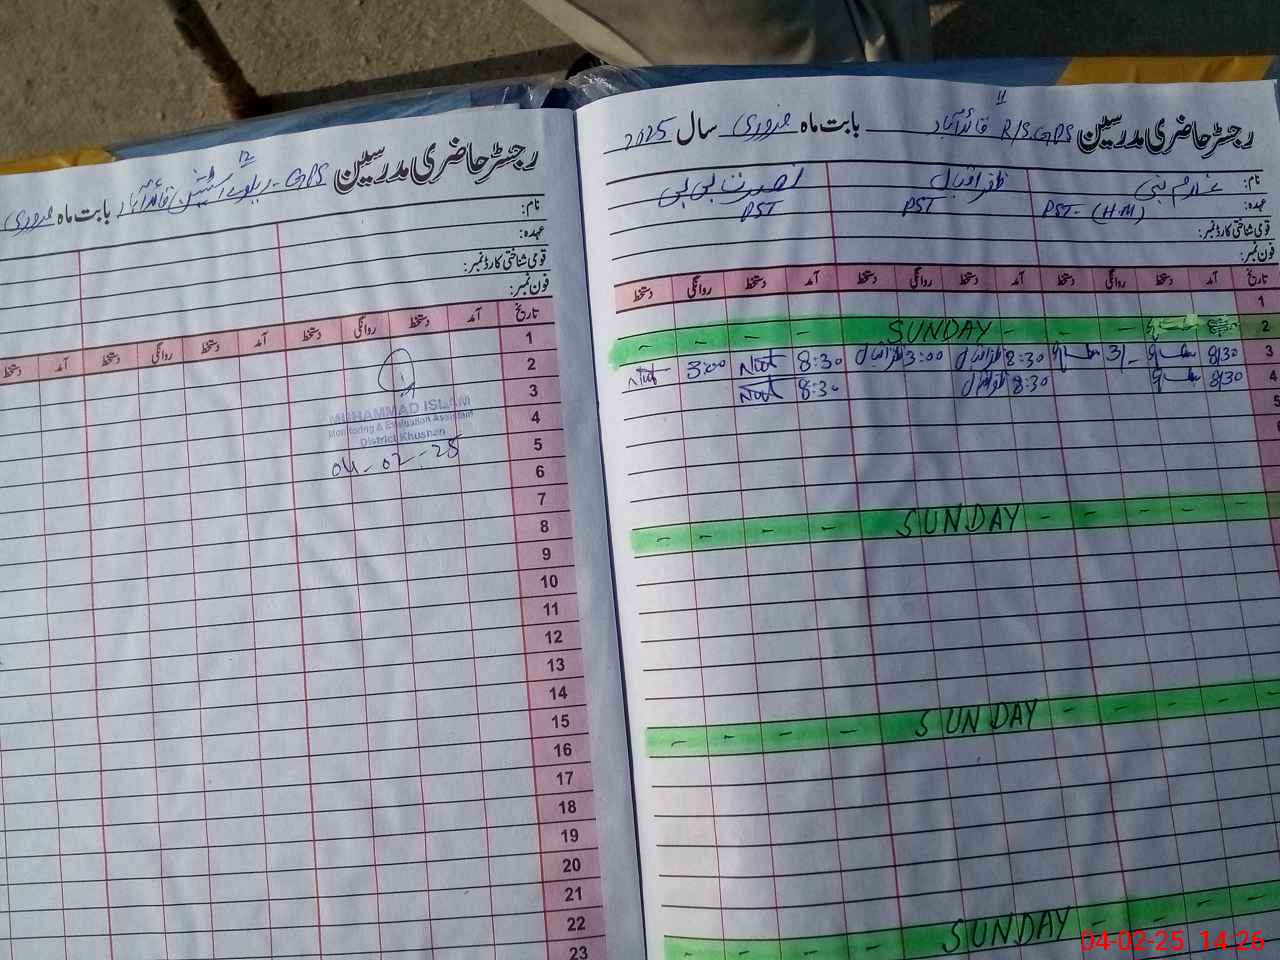 رجسٹر حاضری مدرسین R/S.GPS قائدآباد 11 بابت ماہ فروری سال 2025
نام: غلام نبی ظفر اقبال نصرت بی بی
عہدہ: PST-(H.M) PST PST
قومی شناختی کارڈ نمبر:
فون نمبر:
تاریخ آمد دستخط روانگی دستخط آمد دستخط روانگی دستخط آمد دستخط روانگی دستخط
1
2 - - - SUNDAY - - - -
3 8:30 3/- 8:30 ظفر اقبال 3:00 ظفر اقبال 8:30 3:00
4 8:30 8:30 ظفر اقبال 8:30
5
- - - - SUNDAY - - - -
- - - - SUNDAY - - - -
- - - SUNDAY - -
04-02-25 14:26
رجسٹر حاضری مدرسین GPS - ریلوے اسٹیشن قائدآباد 12 بابت ماہ فروری
نام:
عہدہ:
قومی شناختی کارڈ نمبر:
فون نمبر:
تاریخ آمد دستخط روانگی دستخط آمد دستخط روانگی دستخط
1
2
3
MUHAMMAD ISLAM
4
Monitoring & Evaluation Assistant
District Khushab
5
04-02-25
6
7
8
9
10
11
12
13
14
15
16
17
18
19
20
21
22
23